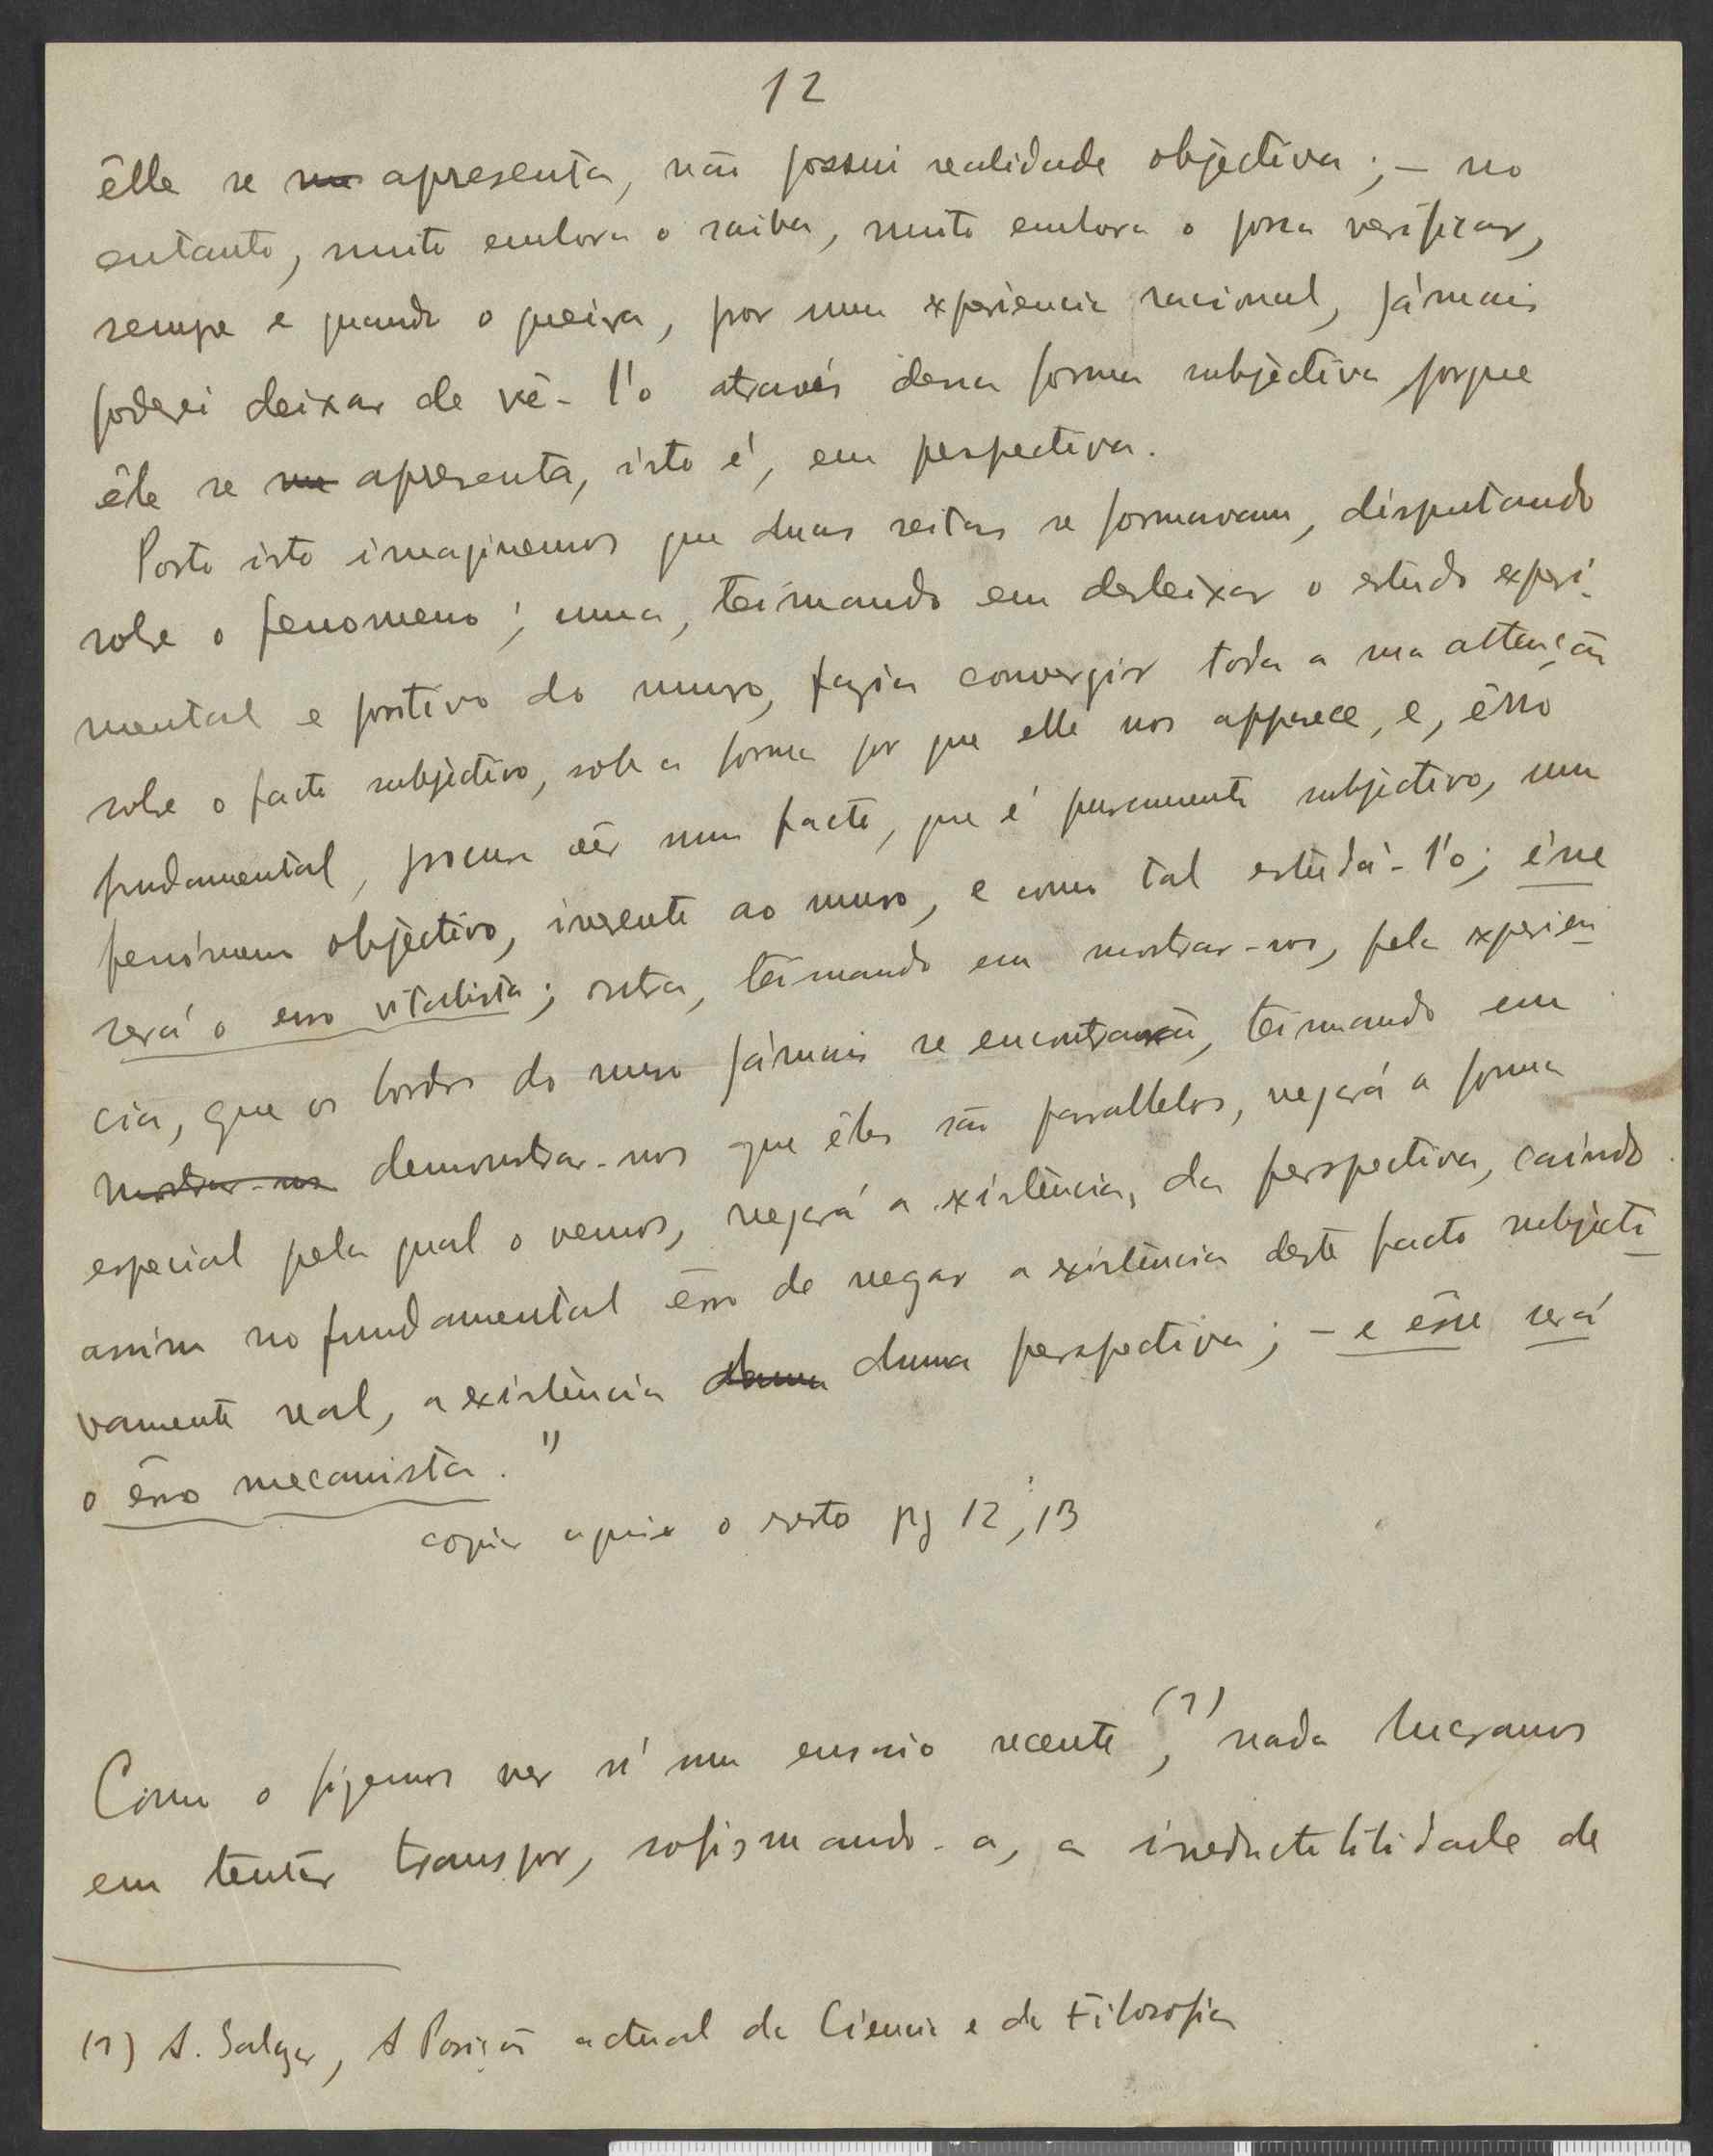 12
êlle se me apresenta, não possui realidade objectiva; – no
entanto, muito embora o saiba, muito embora o possa verificar,
sempre e quando o queira, por uma experiencia racional, jámais
poderei deixar de vê-l'o através dessa forma subjectiva porque
êle se me apresenta, isto é, em perspectiva.
Posto isto imaginemos que duas seitas se formavam, disputando
sobre o fenomeno; uma, teimando em desleixar o estudo experi-
mental e positivo do muro, fazia convergir toda a sua attenção
sobre o facto subjectivo, sobre a forma por que elle nos apparece, e, êrro
fundamental, procura vêr num facto, que é puramente subjectivo, um
fenómeno objectivo, inerente ao muro, e como tal estudá-l'o; êsse
será o erro vitalista; outra, teimando em mostrar-nos, pela experien-
cia, que os bordos do muro jámais se encontrarão, teimando em
mostrar-nos demonstrar-nos que êles são parallelos, negará a forma
especial pela qual o vemos, negará a existência, da perspectiva, caíndo
assim no fundamental êrro de negar a existência deste facto subjecti-
vamente real, a existência duma duma perspectiva; – e êsse será
o êrro mecanista."
copiar aqui o resto pg 12, 13
Como o fizemos ver n'um ensaio recente (1), nada lucramos
em tentar transpor, sofismando-a, a irreductibilidade de
(1) A. Salazar, A Posição actual da Ciencia e da Filosofia